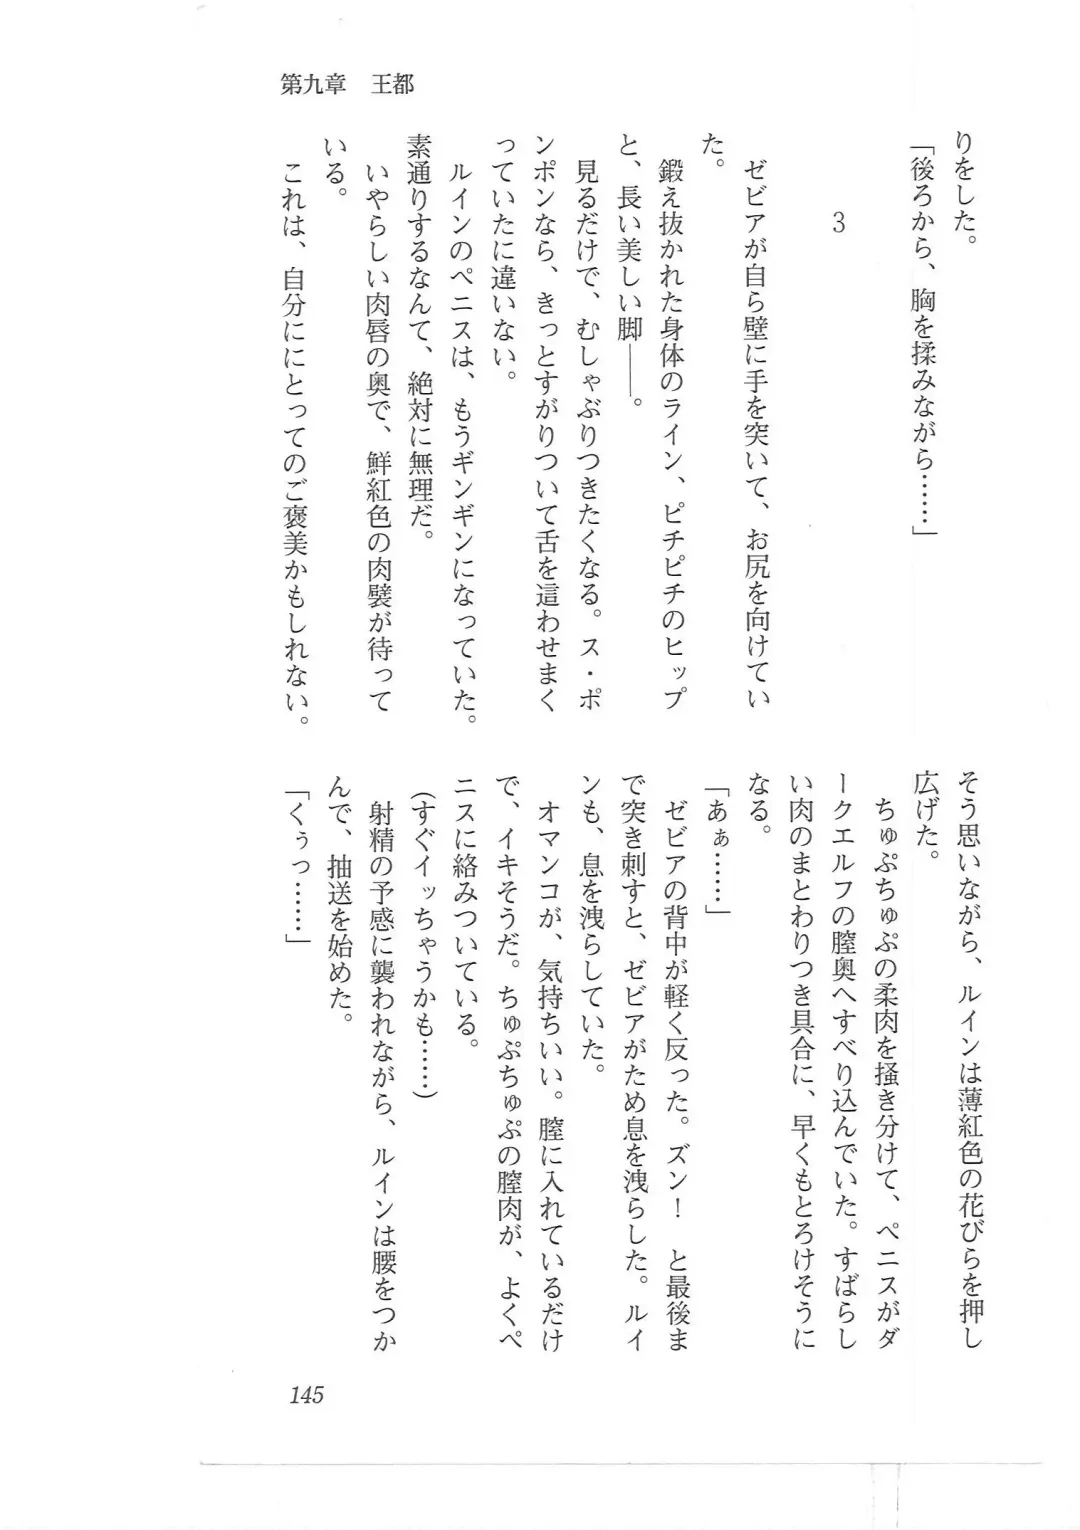 第九章　王都
りをした。
「後ろから、胸を揉みながら……」
3
ゼビアが自ら壁に手を突いて、お尻を向けてい
た。
鍛え抜かれた身体のライン、ピチピチのヒップ
と、長い美しい脚――。
見るだけで、むしゃぶりつきたくなる。ス・ポ
ンポンなら、きっとすがりついて舌を這わせまく
っていたに違いない。
ルインのペニスは、もうギンギンになっていた。
素通りするなんて、絶対に無理だ。
いやらしい肉唇の奥で、鮮紅色の肉襞が待って
いる。
これは、自分ににとってのご褒美かもしれない。
そう思いながら、ルインは薄紅色の花びらを押し
広げた。
ちゅぷちゅぷの柔肉を掻き分けて、ペニスがダ
ークエルフの膣奥へすべり込んでいた。すばらし
い肉のまとわりつき具合に、早くもとろけそうに
なる。
「あぁ……」
ゼビアの背中が軽く反った。ズン！　と最後ま
で突き刺すと、ゼビアがため息を洩らした。ルイ
ンも、息を洩らしていた。
オマンコが、気持ちいい。膣に入れているだけ
で、イキそうだ。ちゅぷちゅぷの膣肉が、よくペ
ニスに絡みついている。
(すぐイッちゃうかも……)
射精の予感に襲われながら、ルインは腰をつか
んで、抽送を始めた。
「くぅっ……」
145